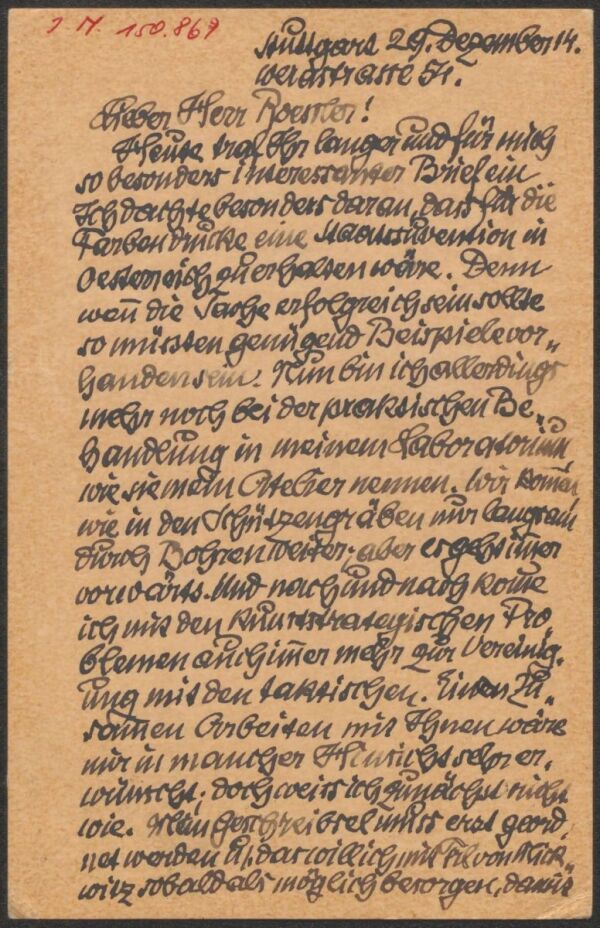 J. N. 150.869
Stuttgart 29. Dezember 14.
Werastrasse 54.
Lieber Herr Roessler!
Heute traf Ihr langer und für mich
so besonders interessanter Brief ein
Ich dachte besonders daran, dass für die
Farbendrucke eine Staatssuvention in
Oesterreich zu erhalten wäre. Denn
weñ die Sache erfolgreich sein sollte
so müssten genügend Beispiele vor„
handen sein. Nun bin ich allerdings
mehr noch bei der praktischen Be„
handlung in meinem Laboratorium
wie sie mein Atelier nennen. Wir kom̃en
wie in den Schützengräben nur langsam
durch Bohren weiter; aber es geht im̃er
vorwärts. Und nach und nach kom̃e
ich mit den kunststrategischen Pro
blemen auch im̃er mehr zur Vereinig„
ung mit den taktischen. Einen Zu„
sam̃en Arbeiten mit Ihnen wäre
mir in mancher Hinsicht sehr er„
wünscht; doch weiss ich zunächst nicht
wie. Mein Geschreibsel muss erst geord„
net werden u, das will ich mit Frl von Mick„
witz sobald als möglich besorgen, damit